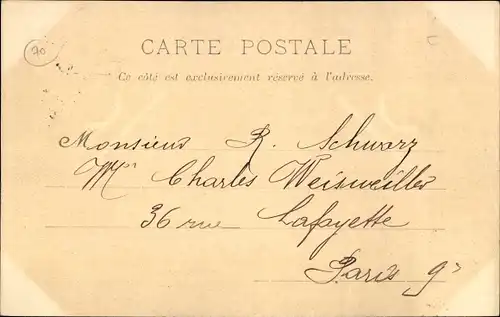 70
CARTE POSTALE
Ce côté est exclusivement réservé à l'adresse.
Monsieur R. Schwarz
Mr. Charles Weisweiller
36 rue Lafayette
Paris 9e